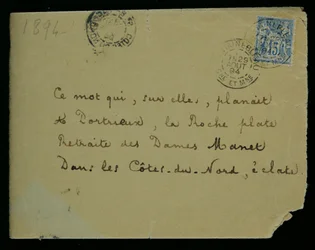 1894
15
29
AOUT
94
Ce mot qui, sur elles, planait
à Portrieux, la Roche plate
Retraite des Dames Manet
Dans les Côtes-du-Nord, éclate